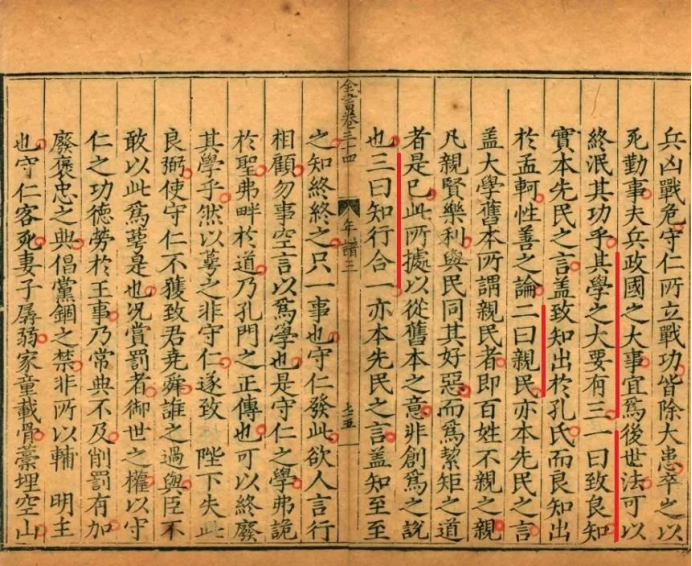 兵凶戰危守仁所立戰功皆除大患卒之以
死勤事夫兵政國之大事宜爲後世法可以
終泯其功乎其學之大要有三一曰致良知
實本先民之言盖致知出於孔氏而良知出
於孟軻性善之論二曰親民亦本先民之言
盖大學舊本所謂親民者即百姓不親之親
凡親賢樂利與民同其好惡而爲絜矩之道
者是已此所據以從舊本之意非創爲之說
也三曰知行合一亦本先民之言盖知至至
全書卷三十四 年譜三
之知終終之只一事也守仁發此欲人言行
相顧勿事空言以爲學也是守仁之學弗詭
於聖弗畔於道乃孔門之正傳也可以終廢
其學乎然以萼之非守仁遂致 陛下失此
良弼使守仁不獲致君堯舜誰之過與臣不
敢以此爲萼是也况賞罰者御世之權以守
仁之功德勞於王事乃常典不及削罰有加
廢褒忠之典倡黨錮之禁非所以輔 明主
也守仁客死妻子孱弱家童載骨藁埋空山